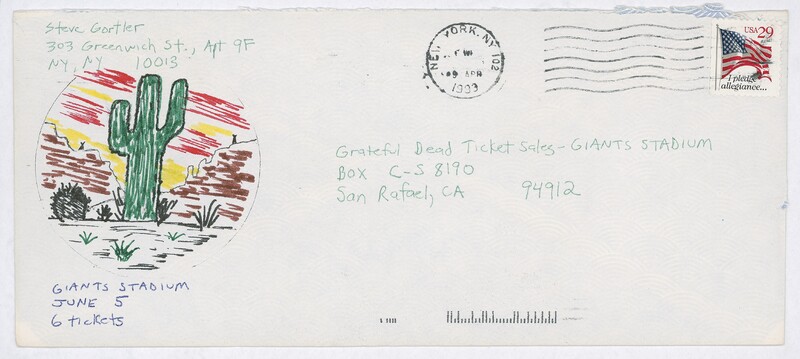 Steve Gortler
303 Greenwich St., Apt 9F
NY, NY 10013
NEW YORK, NY 102
PM
9 APR
1993
USA 29
I pledge
allegiance...
Grateful Dead Ticket Sales - GIANTS STADIUM
BOX C-S 8190
San Rafael, CA 94912
GIANTS STADIUM
JUNE 5
6 tickets